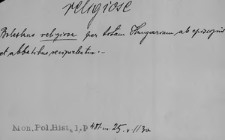 religiose
Boleslaus religiose per totam Hungariam ab episcopis
et abbatibus recipiebatur.
Mon. Pol. Hist. I, p. 481 w. 25. r. 1130